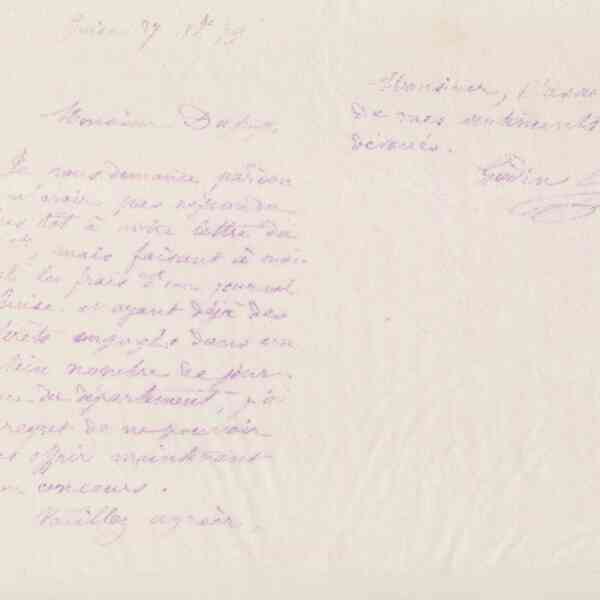 Guise 27 9bre 79
Monsieur Dupuy,
Je vous demande pardon
n'avoir pas répondu
plus tôt à votre lettre du
mais faisant à moi
les frais d'un journal
Guise et ayant déjà des
intérêts engagés dans un
certain nombre de jour-
du département, j'ai
regret de ne pouvoir
offrir maintenant
concours.
Veuillez agréer,
Monsieur, l'assu
de mes sentiments
dévoués.
Godin